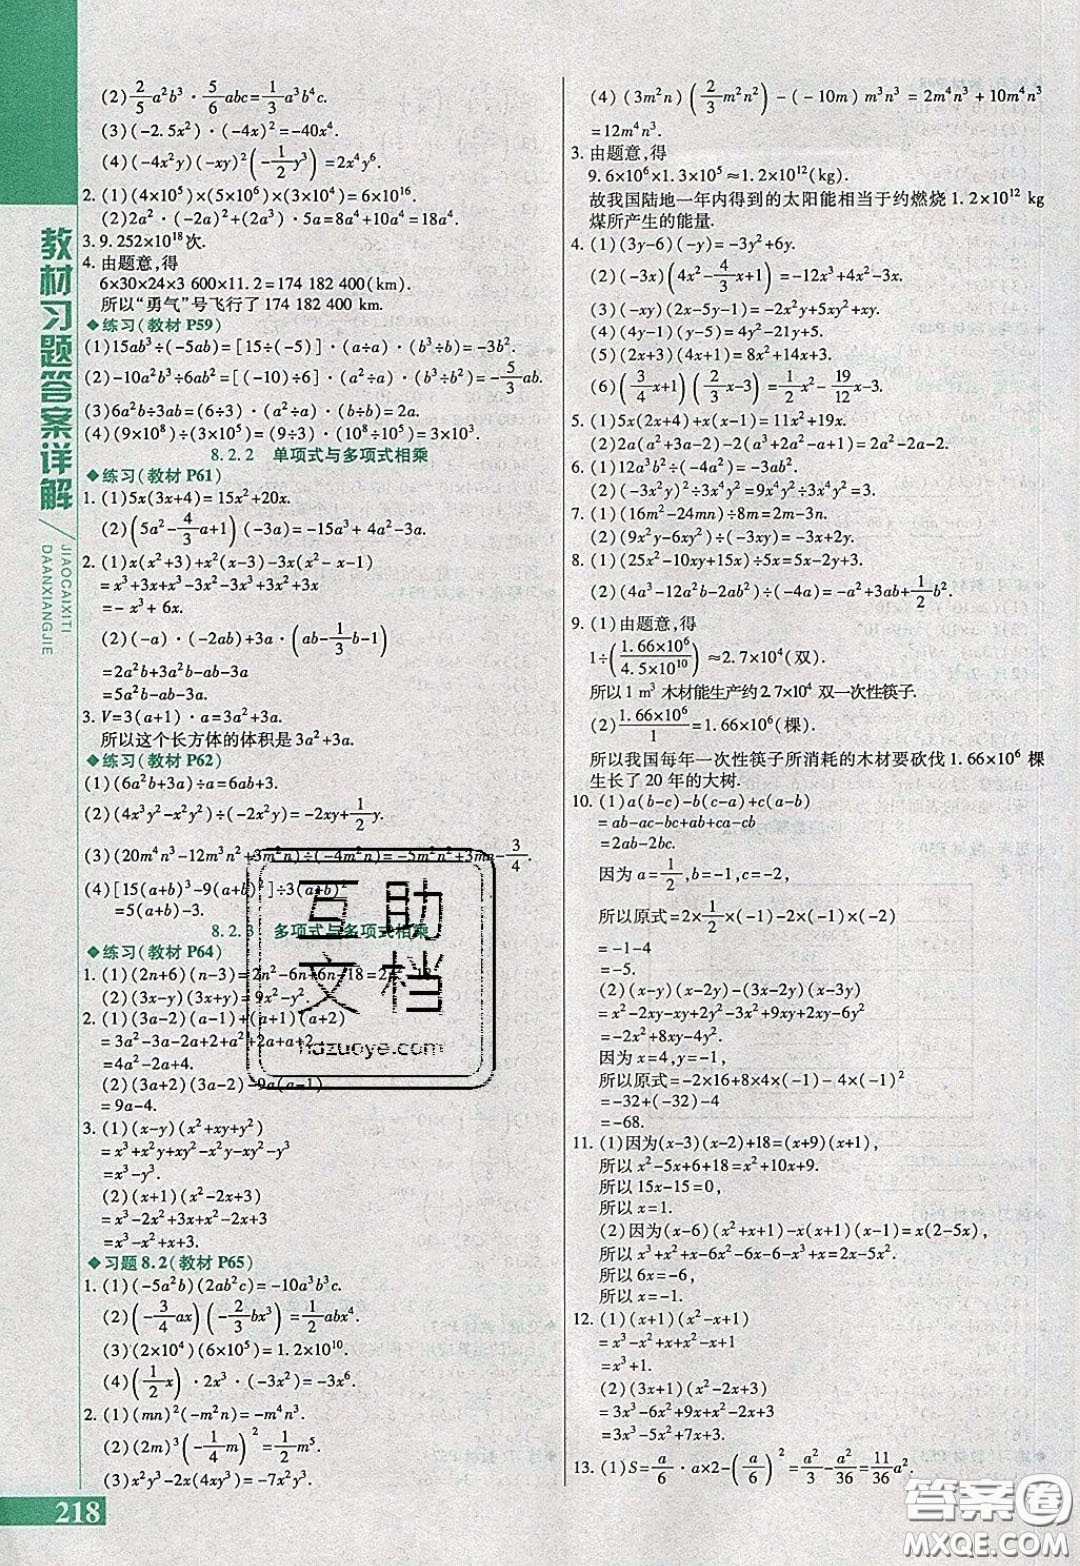 教材习题答案详解
JIAOCAIXITI
DAANXIANGJIE
(2) 2/5 a²b³ · 5/6 abc = 1/3 a³b⁴c.
(3)(-2.5x²)·(-4x)²=-40x⁴.
(4)(-4x²y)(-xy)²(-1/2 y³)=2x⁴y⁶.
2. (1)(4×10⁵)×(5×10⁶)×(3×10⁴)=6×10¹⁶.
(2)2a²·(-2a)²+(2a³)·5a=8a⁴+10a⁴=18a⁴.
3. 9.252×10¹⁸次.
4. 由题意,得
6×30×24×3 600×11.2=174 182 400 km.
所以“勇气”号飞行了 174 182 400 km.
◆练习(教材 P59)
(1)15ab³÷(-5ab)=[15÷(-5)]·(a÷a)·(b³÷b)=-3b².
(2)-10a²b³÷6ab²=[(-10)÷6]·(a²÷a)·(b³÷b²)=-5/3 ab.
(3)6a²b÷3ab=(6÷3)·(a²÷a)·(b÷b)=2a.
(4)(9×10⁸)÷(3×10⁵)=(9÷3)×(10⁸÷10⁵)=3×10³.
8.2.2 单项式与多项式相乘
◆练习(教材 P61)
1. (1)5x(3x+4)=15x²+20x.
(2)(5a²-4/3 a+1)(-3a)=-15a³+4a²-3a.
2. (1)x(x²+3)+x²(x-3)-3x(x²-x-1)
=x³+3x+x³-3x²-3x³+3x²+3x
=-x³+6x.
(2)(-a)·(-2ab)+3a·(ab-1/3 b-1)
=2a²b+3a²b-ab-3a
=5a²b-ab-3a.
3. V=3(a+1)·a=3a²+3a.
所以这个长方体的体积是 3a²+3a.
◆练习(教材 P62)
(1)(6a²b+3a)÷a=6ab+3.
(2)(4x³y²-x²y²)÷(-2x²y)=-2xy+1/2 y.
(3)(20m⁴n³-12m³n²+3m²n)÷(-4m²n)=-5m²n²+3mn-3/4.
(4)[15(a+b)³-9(a+b)²]÷3(a+b)²
=5(a+b)-3.
8.2.3 多项式与多项式相乘
◆练习(教材 P64)
1. (1)(2n+6)(n-3)=2n²-6n+6n-18=2n²-18.
(2)(3x-y)(3x+y)=9x²-y².
2. (1)(3a-2)(a-1)+(a+1)(a+2)
=3a²-3a-2a+2+a²+2a+a+2
=4a²-2a+4.
(2)(3a+2)(3a-2)-9a(a-1)
=9a-4.
3. (1)(x-y)(x²+xy+y²)
=x³+x²y+xy²-x²y-xy²-y³
=x³-y³.
(2)(x+1)(x²-2x+3)
=x³-2x²+3x+x²-2x+3
=x³-x²+x+3.
◆习题 8.2(教材 P65)
1. (1)(-5a²b)(2ab²c)=-10a³b³c.
(2)(-3/4 ax)(-2/3 bx³)=1/2 abx⁴.
(3)(2×10⁴)(6×10⁵)=1.2×10¹⁰.
(4)(1/2 x)·2x³·(-3x²)=-3x⁶.
2. (1)(mn)²(-m²n)=-m⁴n³.
(2)(2m)³(-1/4 m)²=1/2 m⁵.
(3)x²y³-2x(4xy³)=-7x²y³.
218
(4)(3m²n)(2/3 m²n²)-(-10m)m³n³=2m⁴n³+10m⁴n³
=12m⁴n³.
3. 由题意,得
9.6×10⁶×1.3×10⁵≈1.2×10¹²(kg).
故我国陆地一年内得到的太阳能相当于约燃烧 1.2×10¹² kg
煤所产生的能量.
4. (1)(3y-6)(-y)=-3y²+6y.
(2)(-3x)(4x²-4/3 x+1)=-12x³+4x²-3x.
(3)(-xy)(2x-5y-1)=-2x²y+5xy²+xy.
(4)(4y-1)(y-5)=4y²-21y+5.
(5)(2x+3)(4x+1)=8x²+14x+3.
(6)(3/4 x+1)(2/3 x-3)=1/2 x²-19/12 x-3.
5. (1)5x(2x+4)+x(x-1)=11x²+19x.
(2)2a(a²+3a-2)-2(a³+2a²-a+1)=2a²-2a-2.
6. (1)12a³b²÷(-4a²)=-3ab².
(2)(-3x²y)²÷3x⁴y²=9x⁴y²÷3x⁴y²=3.
7. (1)(16m²-24mn)÷8m=2m-3n.
(2)(9x²y-6xy²)÷(-3xy)=-3x+2y.
8. (1)(25x²-10xy+15x)÷5x=5x-2y+3.
(2)(4a³-12a²b-2ab²)÷(-4a)=-a²+3ab+1/2 b².
9. (1)由题意,得
1÷(1.66×10⁶/4.5×10¹⁰)≈2.7×10⁴(双).
所以 1 m³ 木材能生产约 2.7×10⁴ 双一次性筷子.
(2)1.66×10⁶/1=1.66×10⁶(棵).
所以我国每年一次性筷子所消耗的木材要砍伐 1.66×10⁶ 棵
生长了 20 年的大树.
10. (1)a(b-c)-b(c-a)+c(a-b)
=ab-ac-bc+ab+ac-bc
=2ab-2bc.
因为 a=1/2,b=-1,c=-2,
所以原式=2×1/2×(-1)-2×(-1)×(-2)
=-1-4
=-5.
(2)(x-y)(x-2y)-(3x-2y)(x+2y)
=x²-2xy-xy+2y²-3x²-6xy+2xy+4y²
=-2x²-7xy+6y²
因为 x=4,y=-1,
所以原式=-2×16+8×4×(-1)-4
=-32+(-32)-4
=-68.
11. (1)因为(x-3)(x-2)+18=(x+9)(x+1),
所以 x²-5x+6+18=x²+10x+9.
所以 15x-15=0,
所以 x=1.
(2)因为(x-6)(x²+x+1)-x(x+1)(x-1)=x(2-5x),
所以 x³+x²+x-6x²-6x-6-x³+x=2x-5x².
所以 6x=-6,
所以 x=-1.
12. (1)(x+1)(x²-x+1)
=x³-x²+x+x²-x+1
=x³+1.
(2)(3x²-2x+1)(x²+3)
=3x⁴-2x³+9x²+x²-6x+3
=3x⁴-2x³+10x²-6x+3.
13. (1)S=a/6·a×2-(a/6)²=a²/3-a²/36=11/36 a².
互助
文档
hdzuoye.com
答案圈
MXQE.COM